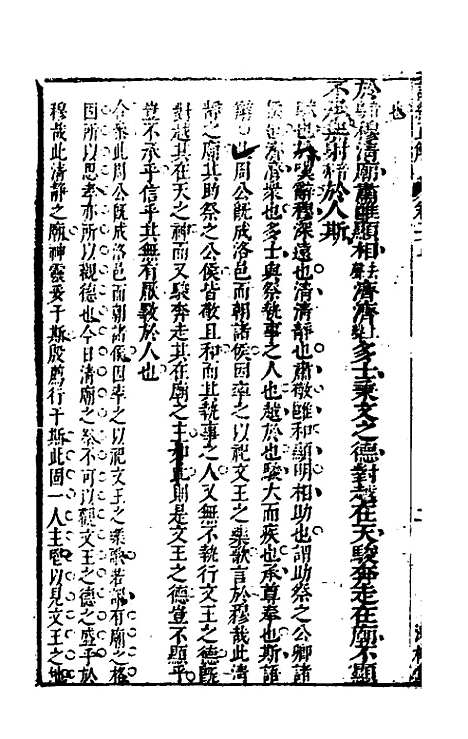 也
於穆清廟肅雝顯相濟濟多士秉文之德對越在天駿奔走在廟不顯
不承無射於人斯
也於嘆辭穆深遠也清清靜也肅敬雝和顯明相助也謂助祭之公卿諸
侯也濟濟眾也多士與祭執事之人也越於也駿大而疾也承尊奉也斯語
辭 周公既成洛邑而朝諸侯因率之以祀文王之樂歌言於穆哉此清
靜之廟其助祭之公侯皆敬且和而其執事之人又無不執行文王之德既
對越其在天之神而又駿奔走其在廟之主如此則是文王之德豈不顯乎
豈不承乎信乎其無有厭斁於人也
合參此周公既成洛邑而朝諸侯因率之以祀文王之樂歌若謂有廟之格
固所以思去亦所以觀德也今日清廟之祭不可以觀文王之德之盛乎於
穆哉此清靜之廟神靈妥于斯殷薦行于斯此固一人主鬯以見文王之地